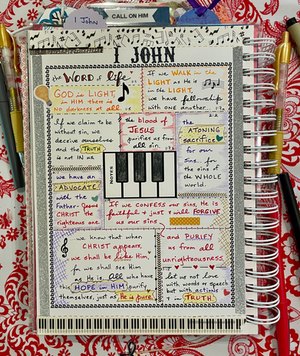 I John
CALL ON HIM
I JOHN
the WORD of life
GOD is LIGHT,
in HIM there is
NO darkness at all
If we WALK in the
LIGHT as He is
in the LIGHT,
we have fellowship
with one another
If we claim to be
without sin, we
deceive ourselves
and the TRUTH
is not IN us
the blood of
JESUS
purifies us from
all sin
the
ATONING
sacrifice
for our
sins
for the
sins of
the WHOLE
world.
we have an
ADVOCATE
with the
Father
CHRIST the
righteous one
If we CONFESS our sins, He is
faithful & just & will FORGIVE
us our sins
we know that when
CHRIST appears,
we shall be like Him,
for we shall see Him
as He is. All who have
this HOPE in HIM purify
themselves, just as He is pure.
and PURIFY
us from all
unrighteousness
let us not love
with words or speech
but with actions
& in TRUTH